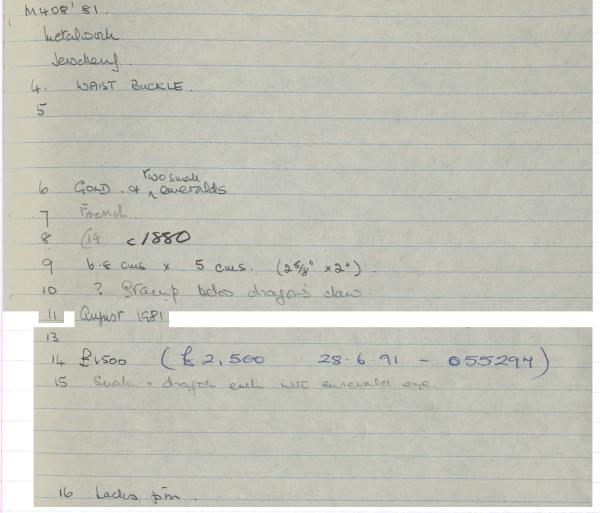 M408'81.
Metalwork
Jewellery
4. WAIST BUCKLE.
5
two small
6 GOLD. & ^ emeralds
7 French
8 C19 c1880
9 6.8 cms x 5 cms. (2 5/8" x 2").
10 ? Stamp below dragon's claw
11 August 1981
13
14 £1500 (£2,500 28.6.91 - 055297)
15 Snake & dragon each with emerald eye.
16 Lacks pin.